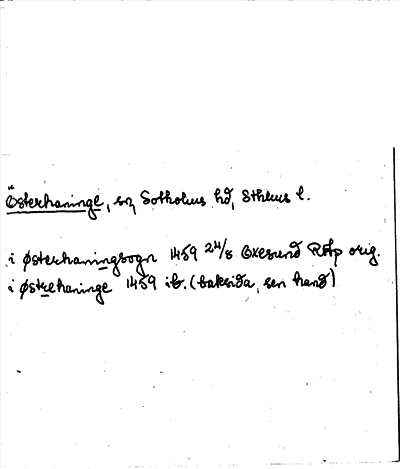 Österhaninge, sn, Sotholms hd, Sthlms l.
i Østerhaningsogn 1459 24/8 Oxesund RAp orig.
i Østrehaninge 1459 ib. (baksida, sen hand)